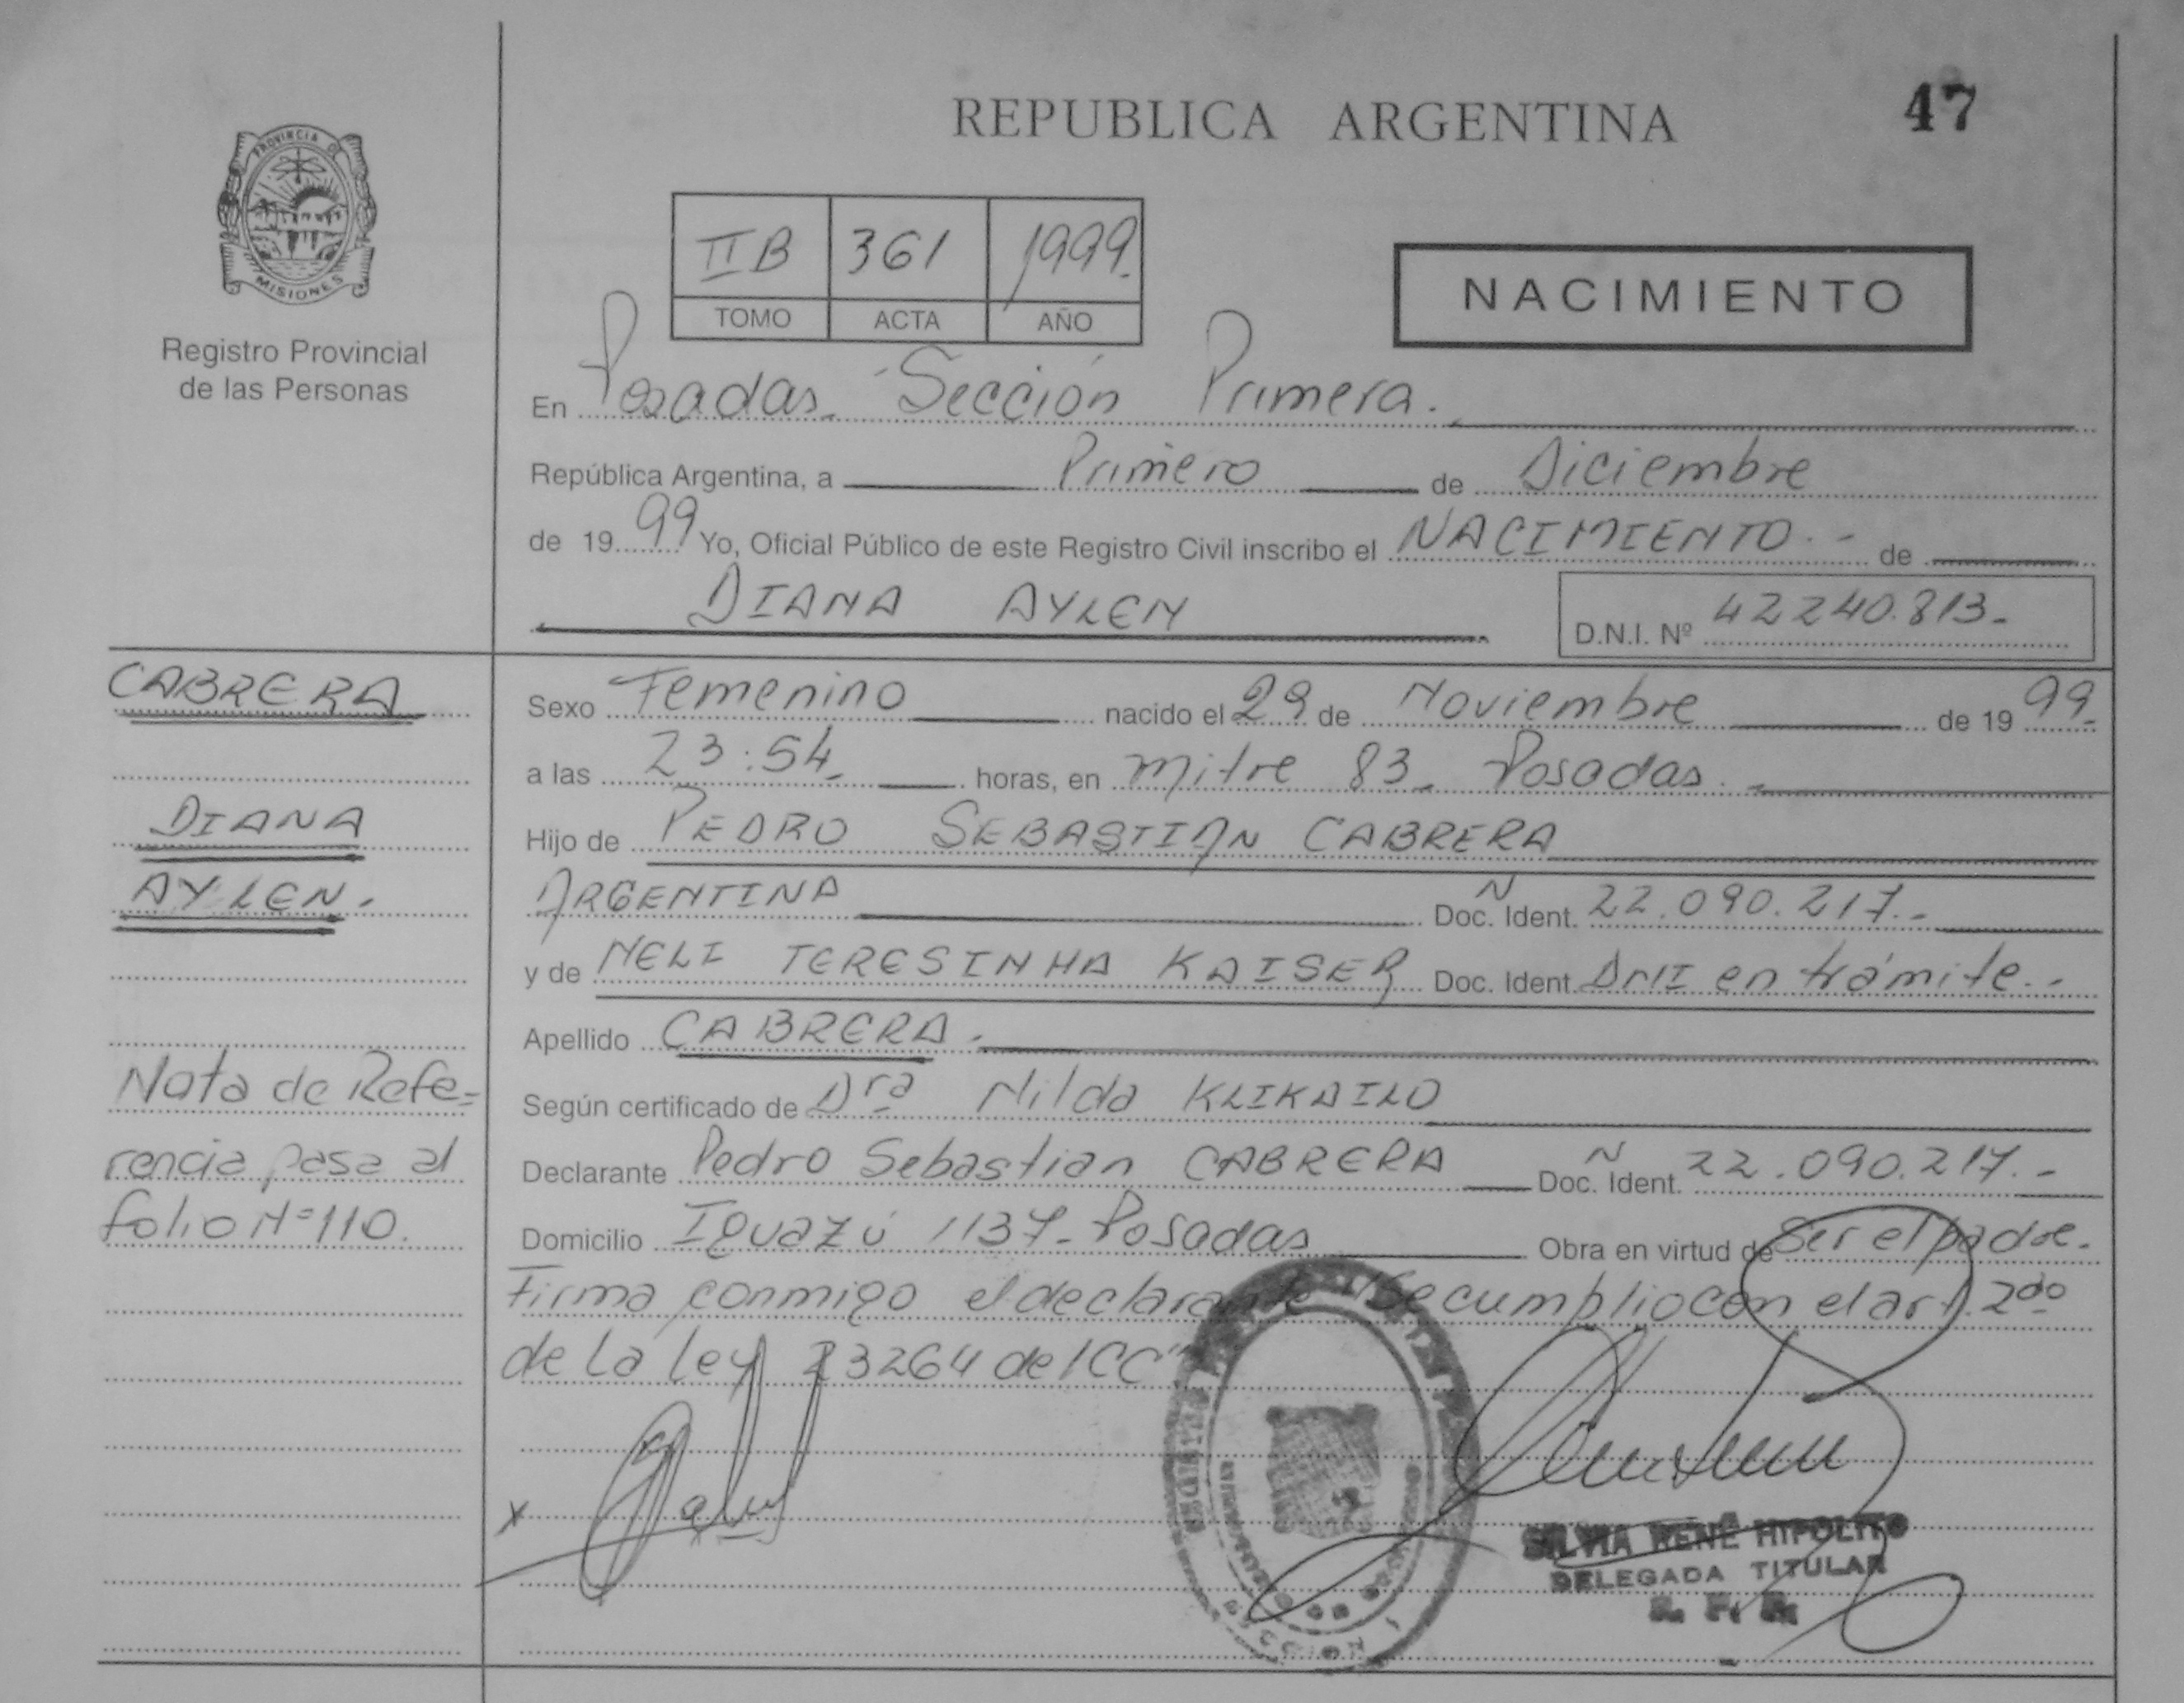 REPUBLICA ARGENTINA
47
PROVINCIA DE
MISIONES
Registro Provincial
de las Personas
II B 361 1999.
TOMO ACTA AÑO
NACIMIENTO
En Posadas. Sección Primera.
República Argentina, a Primero de Diciembre
de 1999 Yo, Oficial Público de este Registro Civil inscribo el NACIMIENTO.- de
DIANA AYLEN
D.N.I. Nº 42240.813.-
CABRERA
DIANA
AYLEN.
Nota de Refe=
rencia pasa al
folio Nº 110.
Sexo Femenino nacido el 29 de Noviembre de 1999.
a las 23:54. horas, en mitre 83. Posadas.
Hijo de PEDRO SEBASTIAN CABRERA
ARGENTINA Doc. Ident. Ñ 22.090.217.-
y de NELI TERESINHA KAISER Doc. Ident. DNI en trámite.-
Apellido CABRERA.
Según certificado de Dra Nilda KLIKAILO
Declarante Pedro Sebastian CABRERA Doc. Ident. Ñ 22.090.217.-
Domicilio Iguazú 1137- Posadas Obra en virtud de Ser el padre.
Firma conmigo el declarante "Se cumplio con el art. 2do
de la Ley 23264 del CC"
x
SILVIA RENE HIPOLITO
DELEGADA TITULAR
R. P. P.
SECCION 1